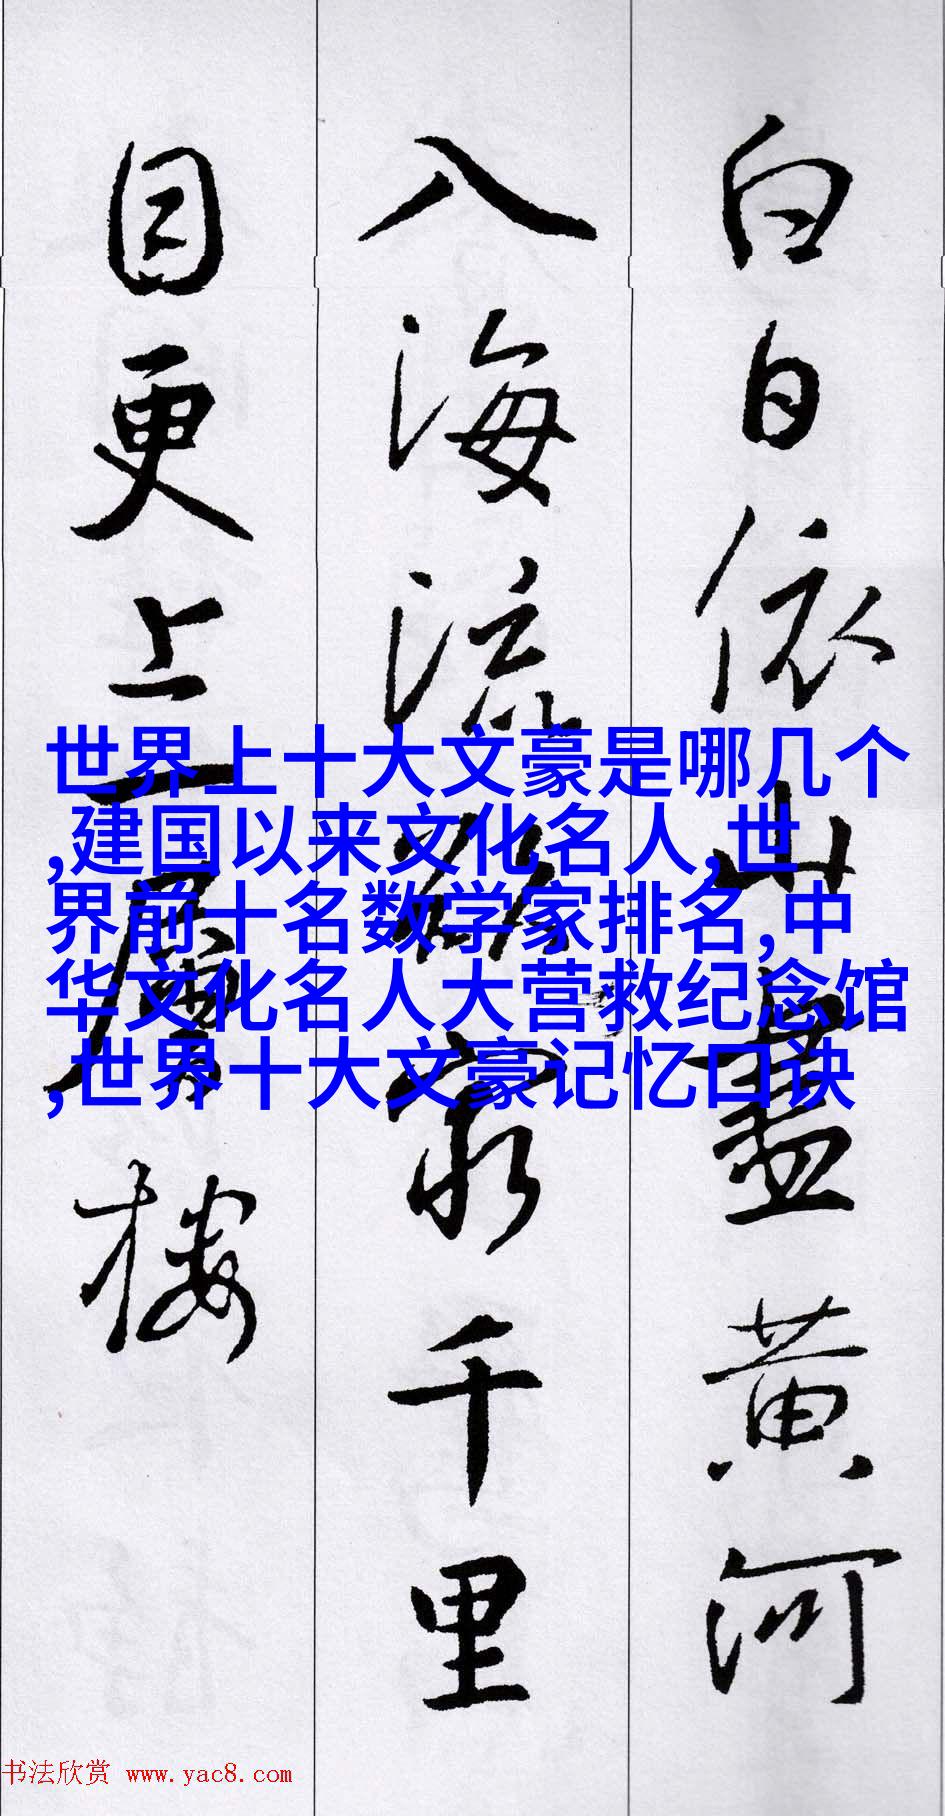 白日依山盡黄河
入海流欲窮千里
目更上一層楼
世界上十大文豪是哪几个
,建国以来文化名人,世
界前十名数学家排名,中
华文化名人大营救纪念馆
,世界十大文豪记忆口诀
书法欣赏 www.yac8.com